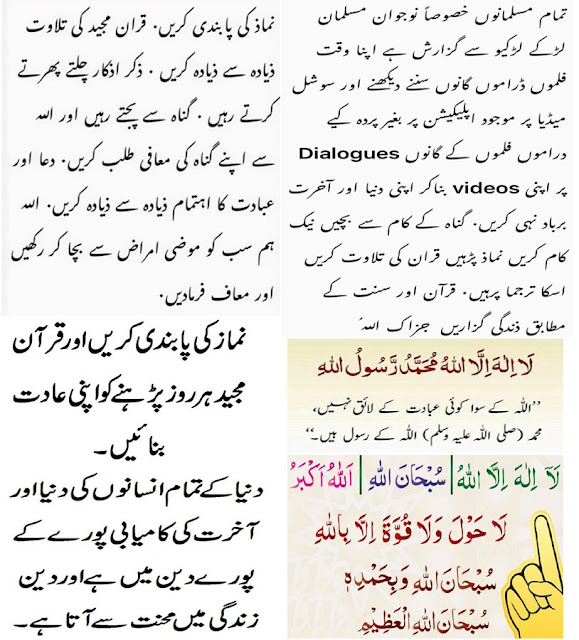 تمام مسلمانوں خصوصاً نوجوان مسلمان
لڑکے لڑکیو سے گزارش ہے اپنا وقت
فلموں ڈراموں گانوں سننے دیکھنے اور سوشل
میڈیا پر موجود اپلیکیشن پر بغیر پردہ کیے
دراموں فلموں کے گانوں Dialogues
پر اپنی videos بناکر اپنی دنیا اور آخرت
برباد نہی کریں. گناہ کے کام سے بچیں نیک
کام کریں نماذ پڑہیں قران کی تلاوت کریں
اسکا ترجما پرہیں. قرآن اور سنت کے
مطابق ذندگی گزاریں جزاک اللہُ
نماذ کی پابندی کریں. قران مجید کی تلاوت
ذیادہ سے ذیادہ کریں. ذکر اذکار چلتے پھرتے
کرتے رہیں. گناہ سے بچتے رہیں اور اللہ
سے اپنے گناہ کی معافی طلب کریں. دعا اور
عبادت کا اہتمام ذیادہ سے ذیادہ کریں. اللہ
ہم سب کو موضی امراض سے بچا کر رکھیں
اور معاف فرمادیں.
نماز کی پابندی کریں اور قرآن
مجید ہر روز پڑہنے کو اپنی عادت
بنائیں۔
دنیا کے تمام انسانوں کی دنیا اور
آخرت کی کامیابی پورے کے
پورے دین میں ہے اور دین
زندگی میں محنت سے آتا ہے۔
لَا اِلٰهَ اِلَّا اللهُ مُحَمَّدٌ رَّسُولُ اللهِ
’’اللہ کے سوا کوئی عبادت کے لائق نہیں،
محمد (صلی اللہ علیہ وسلم) اللہ کے رسول ہیں۔‘‘
لَآ اِلٰهَ اِلَّا اللهُ | سُبْحَانَ اللهِ | اَللهُ اَكْبَرُ
لَا حَوْلَ وَلَا قُوَّةَ اِلَّا بِاللهِ
سُبْحَانَ اللهِ وَبِحَمْدِهٖ
سُبْحَانَ اللهِ الْعَظِيْمِ